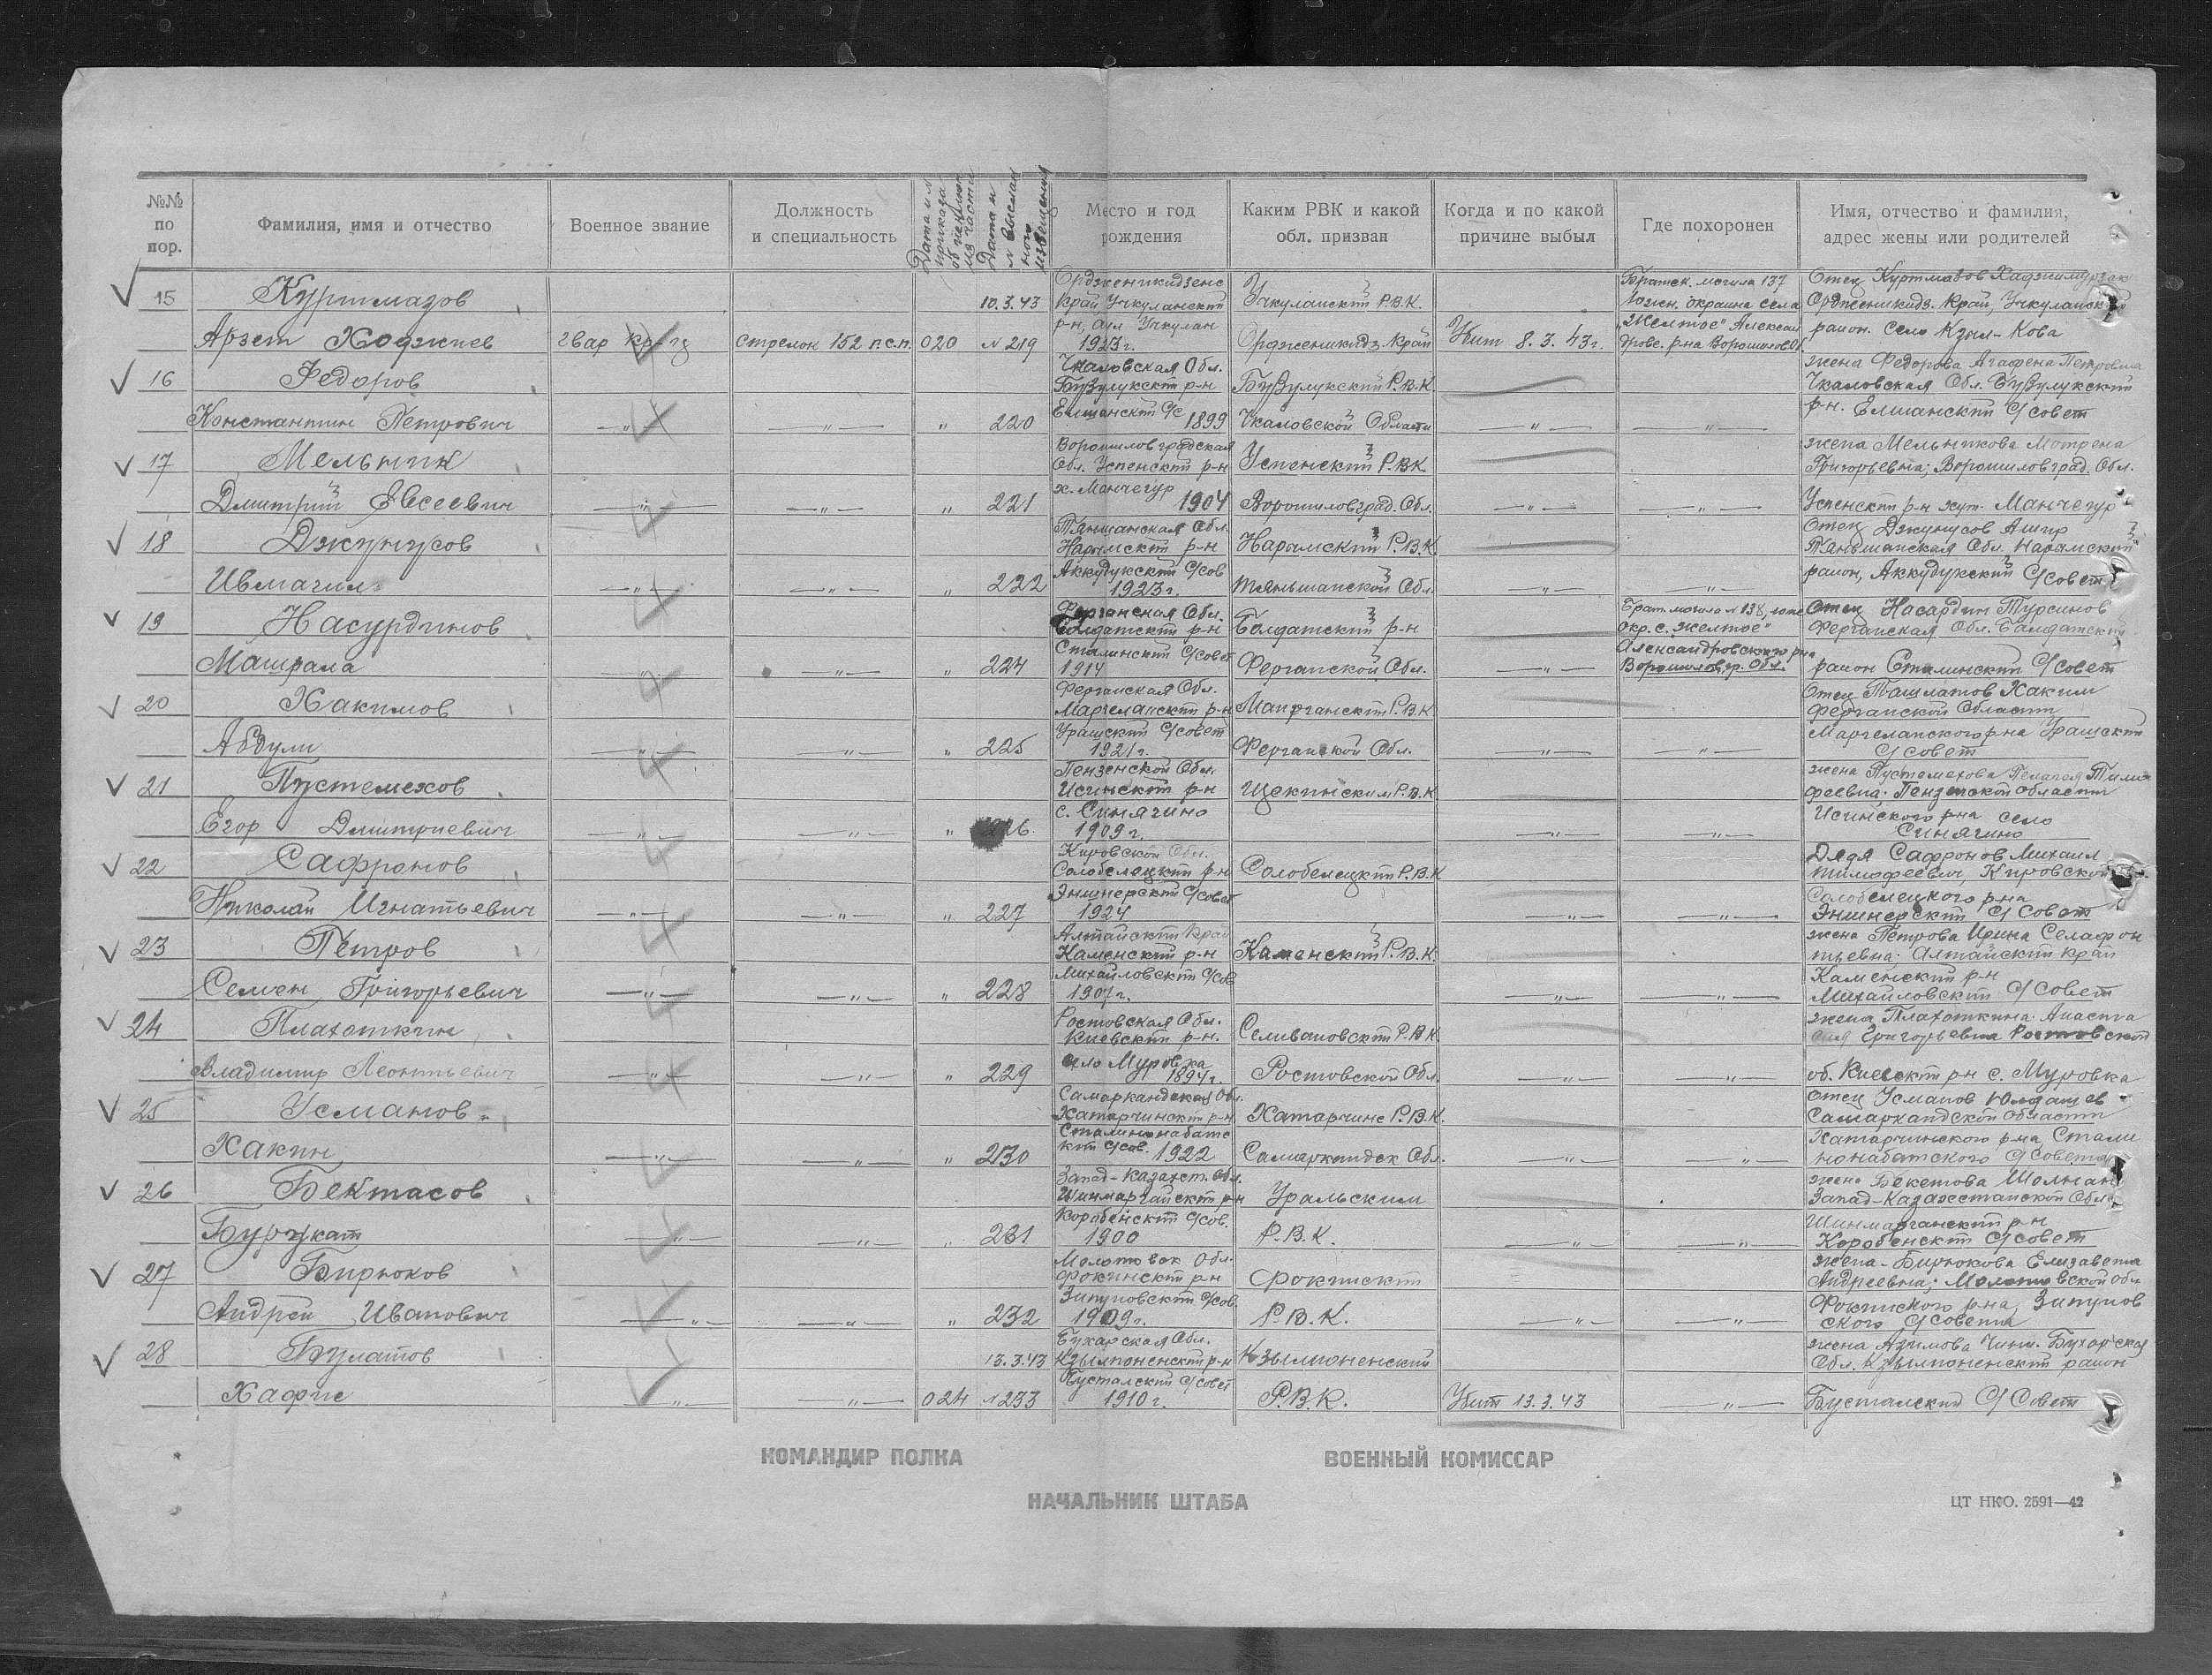 №№ по пор.
Фамилия, имя и отчество
Военное звание
Должность и специальность
Дата и № приказа об исключ. из части
Дата и № высланного извещения
Место и год рождения
Каким РВК и какой обл. призван
Когда и по какой причине выбыл
Где похоронен
Имя, отчество и фамилия, адрес жены или родителей
15
Куртмазов
Арзет Ходжиев
гвар кр-ц
стрелок 152 г.с.п.
020
10.3.43
№ 219
Орджениқидзенс
край, Учкуланский
р-н, аул Учкулан
1923 г.
Учкуланский Р.В.К.
Орджениқидз. край
Убит 8.3.43 г.
Братск. могила 137
Южн. окраина села
"Желтое" Алексан
дров. р-на Ворошилов
Отец Куртмазов Хаджимурзак
Орджениқидз. край, Учкуланский
район. село Кзыл-Кова
16
Федоров
Константин Петрович
—"—
—"—
"
220
Чкаловская Обл.
Бузулукский р-н
Елшанский С/с 1899
Бузулукский Р.В.К
Чкаловской Области
—"—
—"—
жена Федорова Агафена Петровна
Чкаловская Обл. Бузулукский
р-н. Елшанский С/совет
17
Мельник
Дмитрий Евсеевич
—"—
—"—
"
221
Ворошиловградская
Обл. Успенский р-н
х. Манчегур 1904
Успенский Р.В.К.
Ворошиловград. Обл.
—"—
—"—
жена Мельникова Мотрена
Григорьевна; Ворошиловград. Обл.
Успенский р-н хут. Манчегур
18
Джунусов
Ивмагил
—"—
—"—
"
222
Тяншанская Обл.
Нарымский р-н
Аккудукский С/сов
1923 г.
Нарымский Р.В.К
Тяньшанской Обл.
—"—
—"—
Отец Джунусов Ашир
Тяньшанская Обл. Нарымский
район, Аккудукский С/совет
19
Насурдинов
Машрапа
—"—
—"—
"
224
Ферганская Обл.
Балдатский р-н
Сталинский С/совет
1914
Болдатский р-н
Ферганской Обл.
—"—
Брат. могила № 138, южн
окр. с. "Желтое"
Александровского р-на
Ворошиловгр. Обл.
Отец Насардин Турсинов
Ферганская Обл. Балдатский
район Сталинский С/совет
20
Хакимов
Абдули
—"—
—"—
"
225
Ферганская Обл.
Маргеланский р-н
Урашский С/совет
1921 г.
Маргеланский Р.В.К
Ферганской Обл.
—"—
—"—
Отец Ташлатов Хаким
Ферганской Области
Маргеланского р-на Урашский
С/совет
21
Пустемехов
Егор Дмитриевич
—"—
—"—
"
226.
Пензенской Обл.
Исинский р-н
с. Синягино
1909 г.
Щекинским Р.В.К
—"—
—"—
жена Пустемехова Пелагея Тимо
феевна. Пензенской области
Исинского р-на село
Синягино
22
Сафронов
Николай Игнатьевич
—"—
—"—
"
227
Кировской Обл.
Солобелецкий р-н
Эншнерский С/совет
1924
Солобелецкий Р.В.К
—"—
—"—
Дядя Сафронов Михаил
Тимофеевич, Кировской обл
Солобелецкого р-на
Эншнерский С/Совет
23
Петров
Семен Григорьевич
—"—
—"—
"
228
Алтайский край
Каменский р-н
Михайловский С/сов
1907 г.
Каменский Р.В.К.
—"—
—"—
жена Петрова Ирина Селафон
тьевна. Алтайский край
Каменский р-н
Михайловский С/совет
24
Плахоткин
Владимир Леонтьевич
—"—
—"—
"
229
Ростовская Обл.
Киевский р-н.
село Муровка
1894 г.
Селивановский Р.В.К
Ростовской Обл.
—"—
—"—
жена Плахоткина Анаста
сия Григорьевна Ростовской
об. Киевский р-н с. Муровка
25
Усманов
Хакин
—"—
—"—
"
230
Самаркандская Обл.
Хатарчинский р-н
Сталинонабатс
кий С/сов. 1922
Хатарчинс Р.В.К.
Самаркандск Обл.
—"—
"
Отец Усманов Юлдашев
Самаркандской области
Хатарчинского р-на Стали
нонабатского С/совета
26
Бектасов
Буркат
—"—
—"—
"
231
Запад-Казахст. Обл.
Шинмаргайский р-н
Коробенский С/сов.
1900
Уральским
Р.В.К.
—"—
—"—
жена Бекетова Шолпан
Запад-Казахстанской Обл.
Шинмарганский р-н
Коробенский С/совет
27
Бирюков
Андрей Иванович
—"—
—"—
"
232
Молотовск Обл.
Фокинский р-н
Зипуновский С/сов.
1909 г.
Фокинский
Р.В.К.
—"—
—"—
жена-Бирюкова Елизавета
Андреевна; Молотовской обл
Фокинского р-на, Зипунов
ского С/совета
28
Булатов
Хафис
—"—
—"—
024
13.3.43
№ 233
Бухарская Обл.
Кзылтоненский р-н
Бусталский С/совет
1910 г.
Кзылтоненский
Р.В.К.
Убит 13.3.43
—"—
жена Азимова Чини. Бухарская
Обл. Кзылтоненский район
Бусталский С/Совет
КОМАНДИР ПОЛКА
ВОЕННЫЙ КОМИССАР
НАЧАЛЬНИК ШТАБА
ЦТ НКО. 2591—42